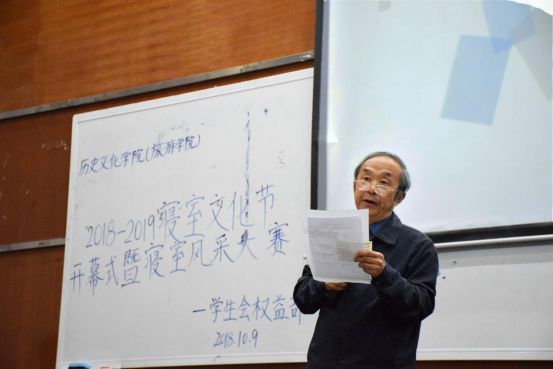 历史文化学院(旅游学院)
2018-2019寝室文化节
开幕式暨寝室风采大赛
—学生会权益部
2018.10.9